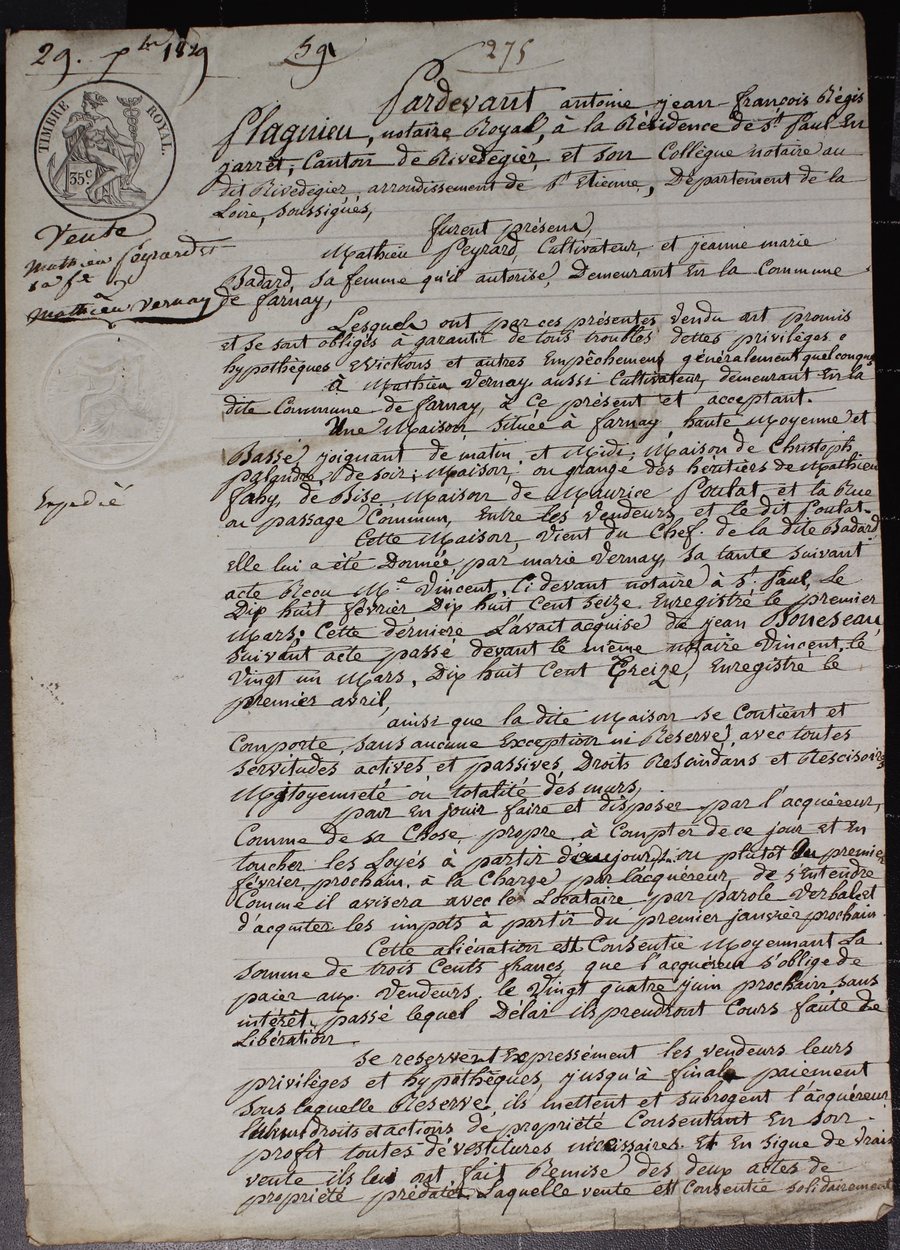 29. xbre 1829
59
275
TIMBRE ROYAL.
35c
Vente
Mathieu Peyrard et
sa fe
à
Mathieu Vernay
Expedié
Pardevant antoine jean-françois Régis
Plagnieu, notaire Royal, à la Résidence de St. Paul En
jarret, Canton de Rivedegier, et son Collègue notaire au
dit Rivedegier, arrondissement de St. Etienne, Département de la
Loire, soussignés,
furent présens,
Mathieu Peyrard, Cultivateur, et jeanne marie
Badard, sa femme qu'il autorise, Demeurant En la Commune
de farnay,
Lesquels ont par ces présentes vendu avec promis
et se sont obligés à garantir de tous troubles dettes privilèges
hypothèques Evictions et autres Empêchemens généralement quelconques
à Mathieu Vernay aussi Cultivateur, demeurant En la
dite Commune de farnay, à ce présent et acceptant.
Une Maison, située à farnay, haute Moyenne et
Basse, joignant de matin, et Midi, Maison de Christophe
de soir; Maison, ou grange des héritiers de Mathieu
fahy, de Bise, Maison de Maurice Poulat et la Rue
ou passage Commun, Entre les Vendeurs et le dit Poulat.
Cette Maison, vient du Chef de la dite Badard
elle lui a été Donnée, par marie Vernay, sa tante suivant
acte Recu Me. Vincent, Ci devant notaire à St. Paul, Le
Dix huit février Dix huit Cent seize Enregistré le premier
Mars; Cette dérniere L'avait acquise de jean Boneseau,
suivant acte passé devant le même notaire Vincent, le
Vingt un Mars, Dix huit Cent Treize, Enregistré le
premier avril,
ainsi que la dite Maison se Contient et
Comporte, sans aucune Exception ni Reserve, avec toutes
servitudes actives et passives, Droits Rescindans et Rescisoires
Mitoyenneté ou totalité des murs,
pour En jouir faire et disposer par l'acquéreur,
Comme de sa Chose propre, à Compter de ce jour et En
toucher les Loyés à partir d'aujourd. ou plutôt du premier
février, prochain, à la Charge par l'acquéreur, de s'Entendre
Comme il avisera avec le Locataire par parole Verbale et
d'acquiter les impots à partir du premier janvier prochain.
Cette aliénation est Consentie Moyennant La
somme de trois Cents francs, que l'acquéreur s'oblige de
paier aux Vendeurs, le Vingt quatre juin prochain sans
intérêt, passé lequel Délai ils prendront Cours faute de
Libération.
se reservent Expressément les vendeurs leurs
privilèges et hypothèques, jusqu'à final paiement
sous laquelle Reserve, ils mettent et subrogent l'acquéreur
droits et actions de propriété Consentant En son
profit toutes dévestitures nécessaires. Et En signe de vraie
vente ils lui ont fait Remise des deux actes de
propriété prédatés. Laquelle vente est Consentie solidairement